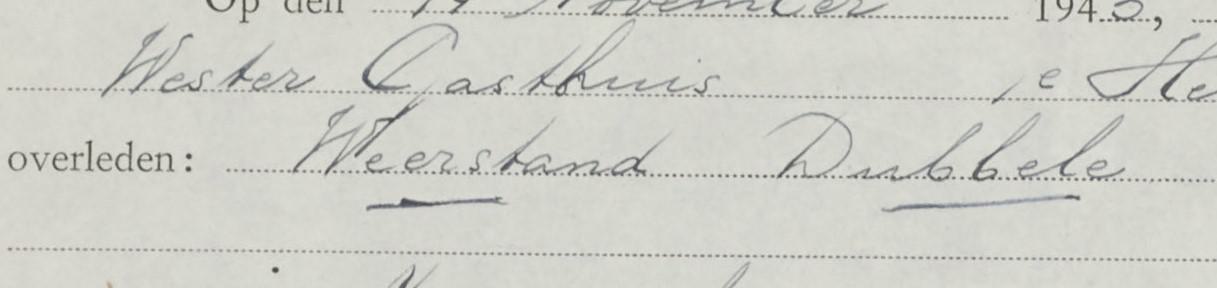 Op den 14 November 1945,
Wester Gasthuis te He
overleden: Weerstand Dubbele